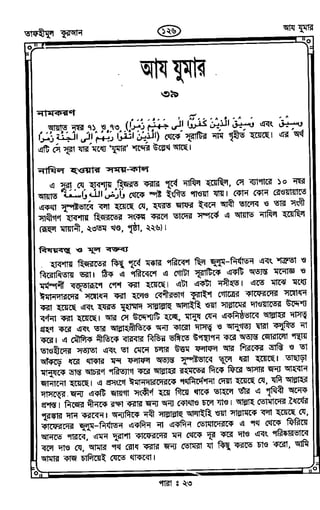 তাফহীমুল কুরআন
১২৬
আয যুমার
আয যুমার
৩৯
নামকরণ
আয়াত নম্বর ৭১ ও ৭৩ (وَسِيقَ الَّذِينَ كَفَرُوا إِلَى جَهَنَّمَ زُمَرًا) এবং وَسِيقَ
الَّذِينَ اتَّقَوْا رَبَّهُمْ إِلَى الْجَنَّةِ زُمَرًا) থেকে সূরাটির নাম গৃহীত হয়েছে। এর অর্থ
এটি সে সূরা যার মধ্যে 'যুমার' শব্দের উল্লেখ আছে।
নাযিল হওয়ার সময়-কাল
এ সূরা যে হাবশায় হিজরত করার পূর্বে নাযিল হয়েছিল, সে ব্যাপারে ১০ নম্বর
আয়াত وَأَرْضُ اللَّهِ وَاسِعَةٌ থেকে স্পষ্ট ইংগিত পাওয়া যায়। কোন কোন রেওয়ায়াতে
একথা সুস্পষ্টভাবে বলা হয়েছে যে, হযরত জাফর ইবনে আবী তালেব ও তার সাথী
সংগীগণ হাবশায় হিজরতের সংকল্প করলে তাদের সম্পর্কে এ আয়াত নাযিল হয়েছিল
(রূহুল মায়ানী, ২৩তম খণ্ড, পৃষ্ঠা, ২২৬)।
বিষয়বস্তু ও মূল বক্তব্য
হাবশায় হিজরতের কিছু পূর্বে মক্কার পরিবেশ ছিল জুলুম-নির্যাতন এবং শত্রুতা ও
বিরোধিতায় ভরা। ঠিক এ পরিবেশে এ গোটা সূরাটিকে একটি অত্যন্ত মনোজ্ঞ ও
মর্মস্পর্শী বক্তৃতারূপে পেশ করা হয়েছে। এটা একটা নসীহত। এতে মাঝে মধ্যে
ঈমানদারদের সম্বোধন করা হলেও বেশীরভাগ কুরাইশ গোত্রের কাফেরদের সম্বোধন
করা হয়েছে এবং হযরত মুহাম্মাদ সাল্লাল্লাহু আলাইহি ওয়া সাল্লামের দাওয়াতের উদ্দেশ্য
বর্ণনা করা হয়েছে। আর সে উদ্দেশ্যটি হচ্ছে, মানুষ যেন একনিষ্ঠভাবে আল্লাহর দাসত্ব
গ্রহণ করে এবং তার আল্লাহপ্রীতিকে অন্য কারো দাসত্ব ও আনুগত্য দ্বারা কলুষিত না
করে। এ মৌলিক নীতিকে বারবার বিভিন্ন ভঙ্গিতে উপস্থাপন করে অত্যন্ত জোরালো পন্থায়
তাওহীদের সত্যতা এবং তা মেনে চলার উত্তম ফলাফল আর শিরকের ভ্রান্তি ও তা
আঁকড়ে ধরে থাকার মন্দ ফলাফল অত্যন্ত সুস্পষ্টভাবে তুলে ধরা হয়েছে। তাছাড়া
মানুষকে ভ্রান্ত আচরণ পরিত্যাগ করে আল্লাহর রহমতের দিকে ফিরে আসার জন্য আহবান
জানানো হয়েছে। এ প্রসংগে ঈমানদারদেরকে পথনির্দেশনা দেয়া হয়েছে যে, যদি আল্লাহর
দাসত্বের জন্য একটি জায়গা সংকীর্ণ হয়ে গিয়ে থাকে তাহলে তাঁর এ পৃথিবী অনেক
প্রশস্ত। নিজের দীনকে রক্ষা করার জন্য অন্য কোথাও চলে যাও। আল্লাহ তোমাদের ধৈর্যের
পুরস্কার দান করবেন। অন্যদিকে নবী সাল্লাল্লাহু আলাইহি ওয়া সাল্লামকে বলা হয়েছে যে,
কাফেরদের জুলুম-নির্যাতন একদিন না একদিন তোমাদেরকে এ পথ থেকে ফিরিয়ে
আনতে পারবে, এমন দুরাশা কাফেরদের মন থেকে দূর করে দাও এবং পরিষ্কারভাবে
বলে দাও যে, আমার পথ রোধ করার জন্য তোমরা যা কিছু করতে চাও করো, আমি
আমার কাজ চালিয়েই যেতে থাকবো।
পারা : ২৩